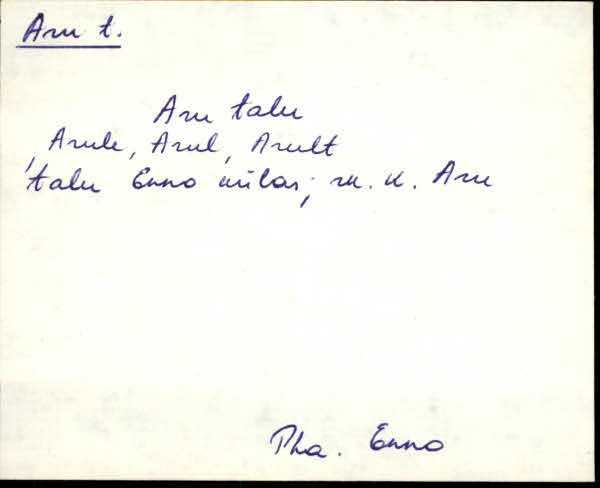 Aru t.
Aru talu
, Arule, Arul, Arult
talu Enno külas; m. k. Aru
Pha. Enno